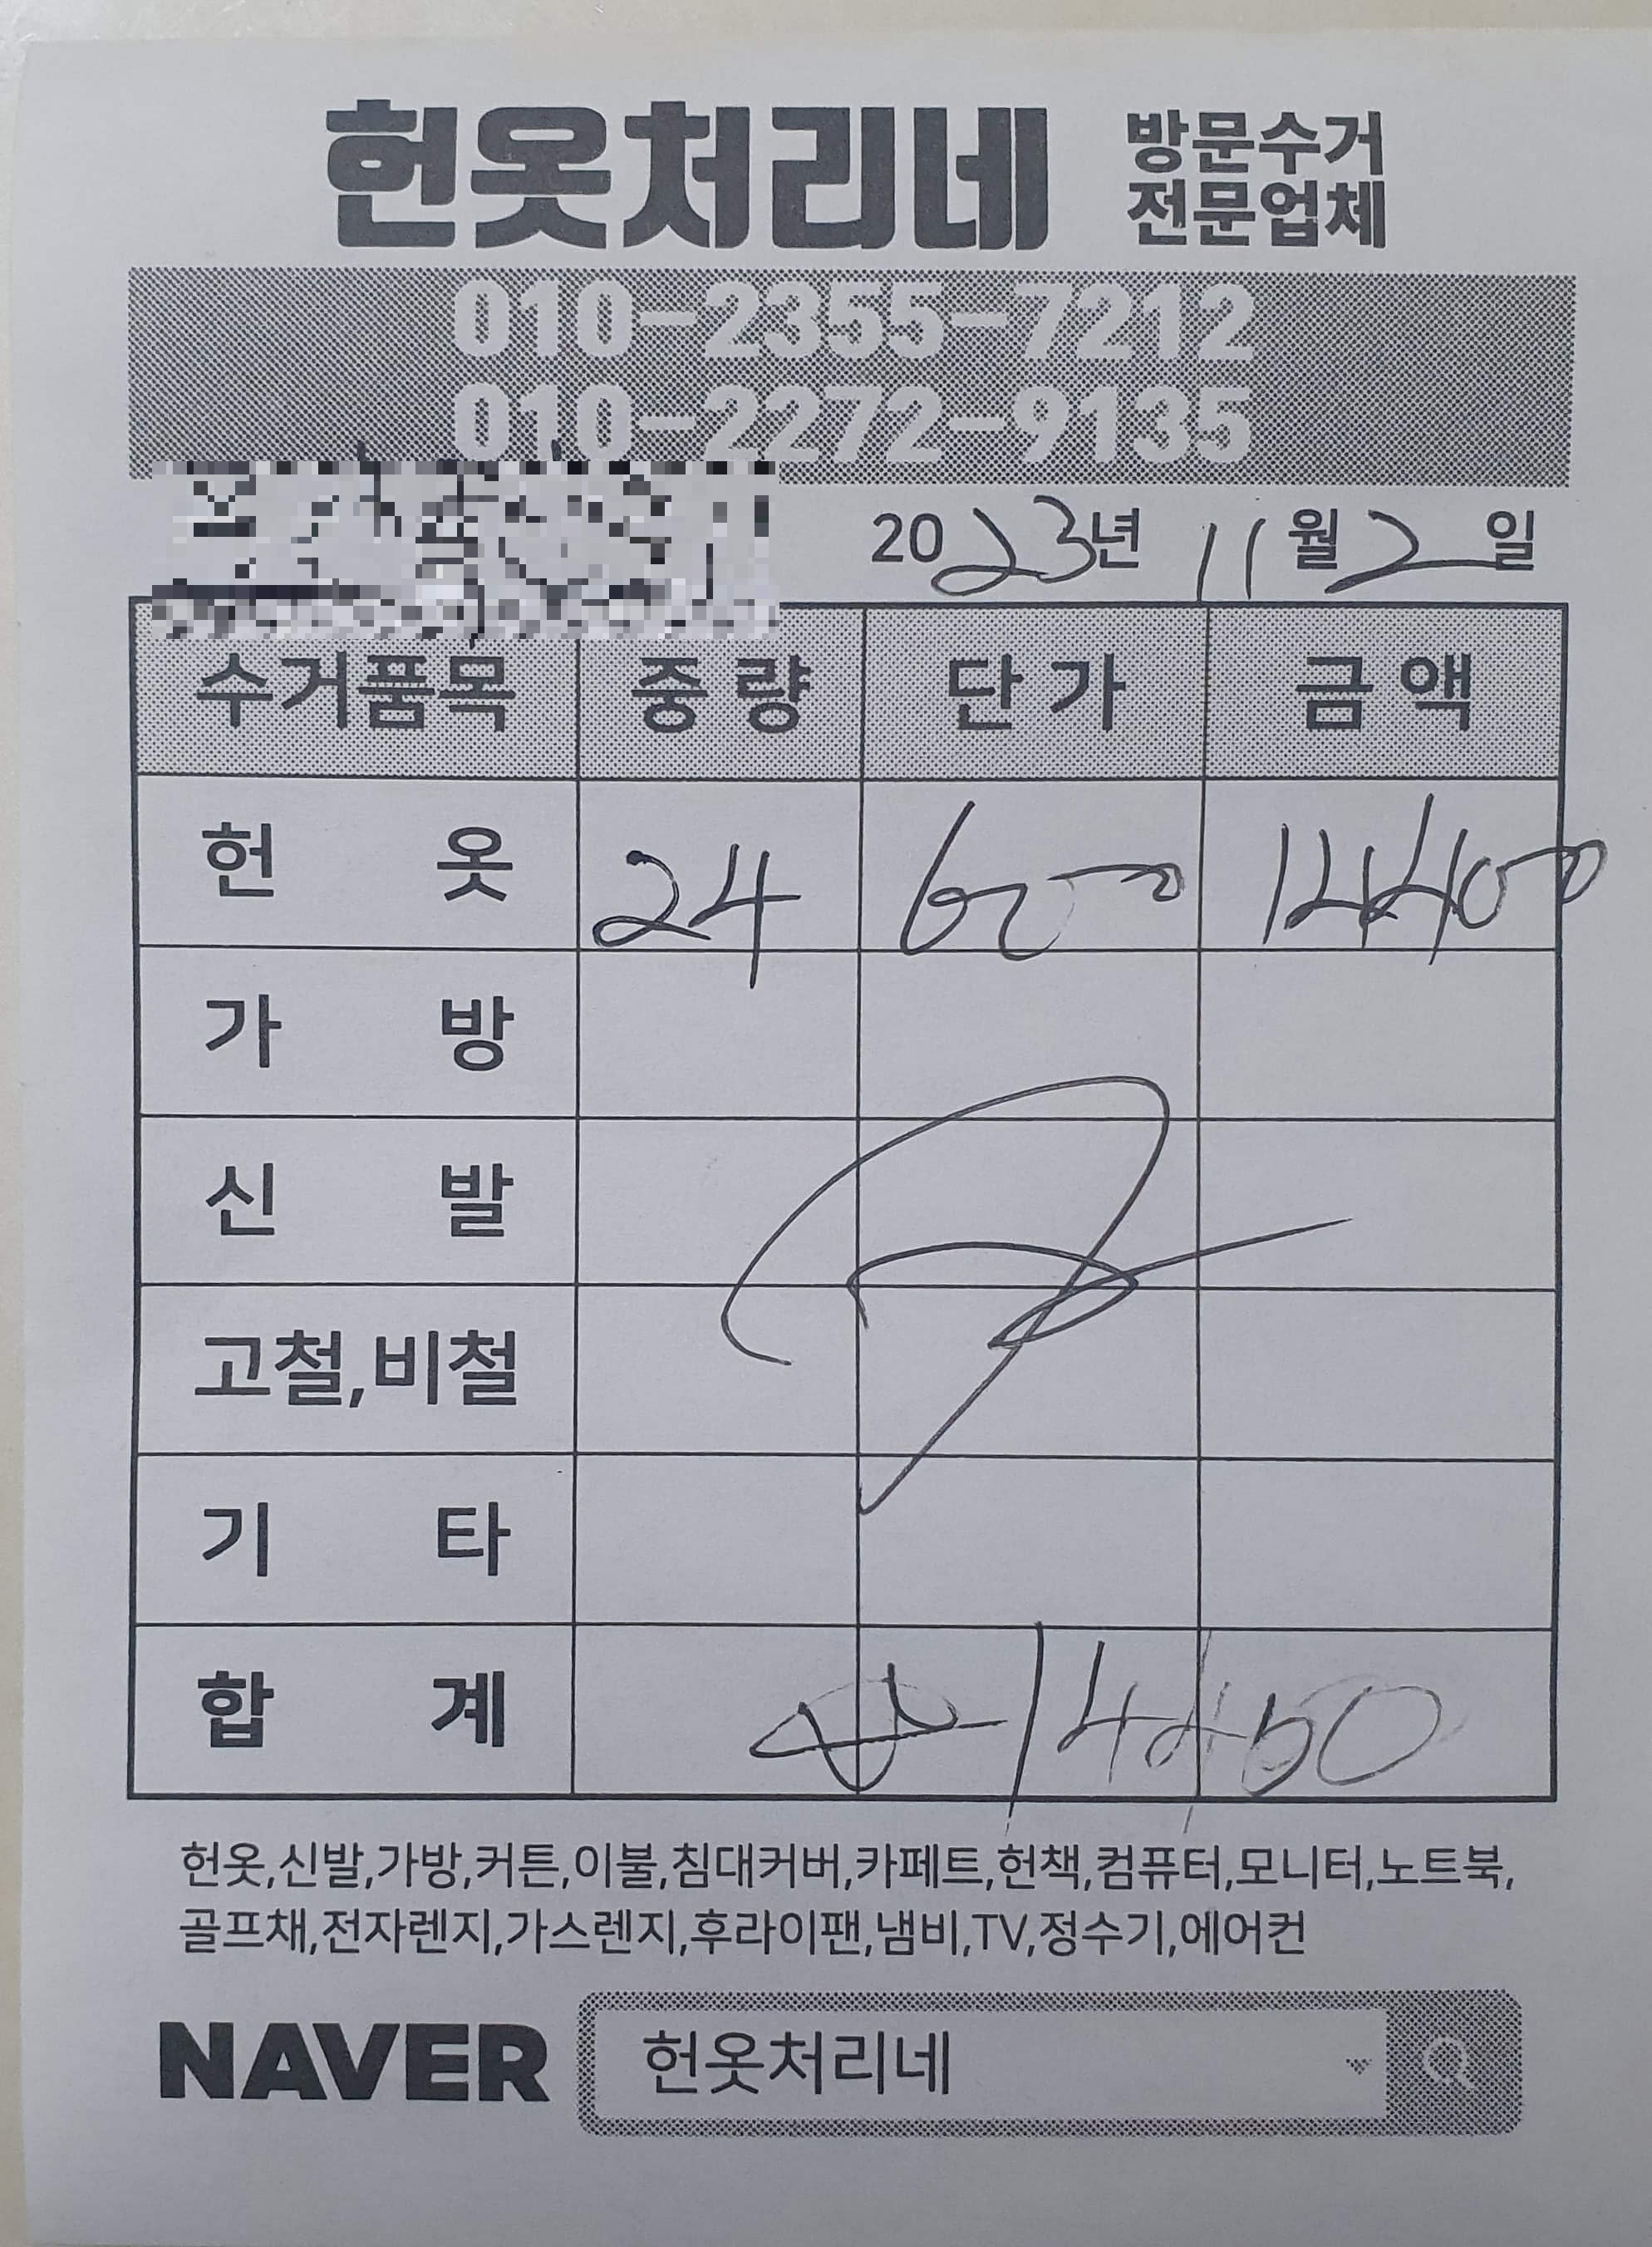 헌옷처리네 방문수거 전문업체
010-2355-7212
010-2272-9135
2023년 11월 2일
수거품목 중량 단가 금액
헌옷 24 600 14400
가방
신발
고철,비철
기타
합계 14400
헌옷,신발,가방,커튼,이불,침대커버,카페트,헌책,컴퓨터,모니터,노트북,
골프채,전자렌지,가스렌지,후라이팬,냄비,TV,정수기,에어컨
NAVER 헌옷처리네